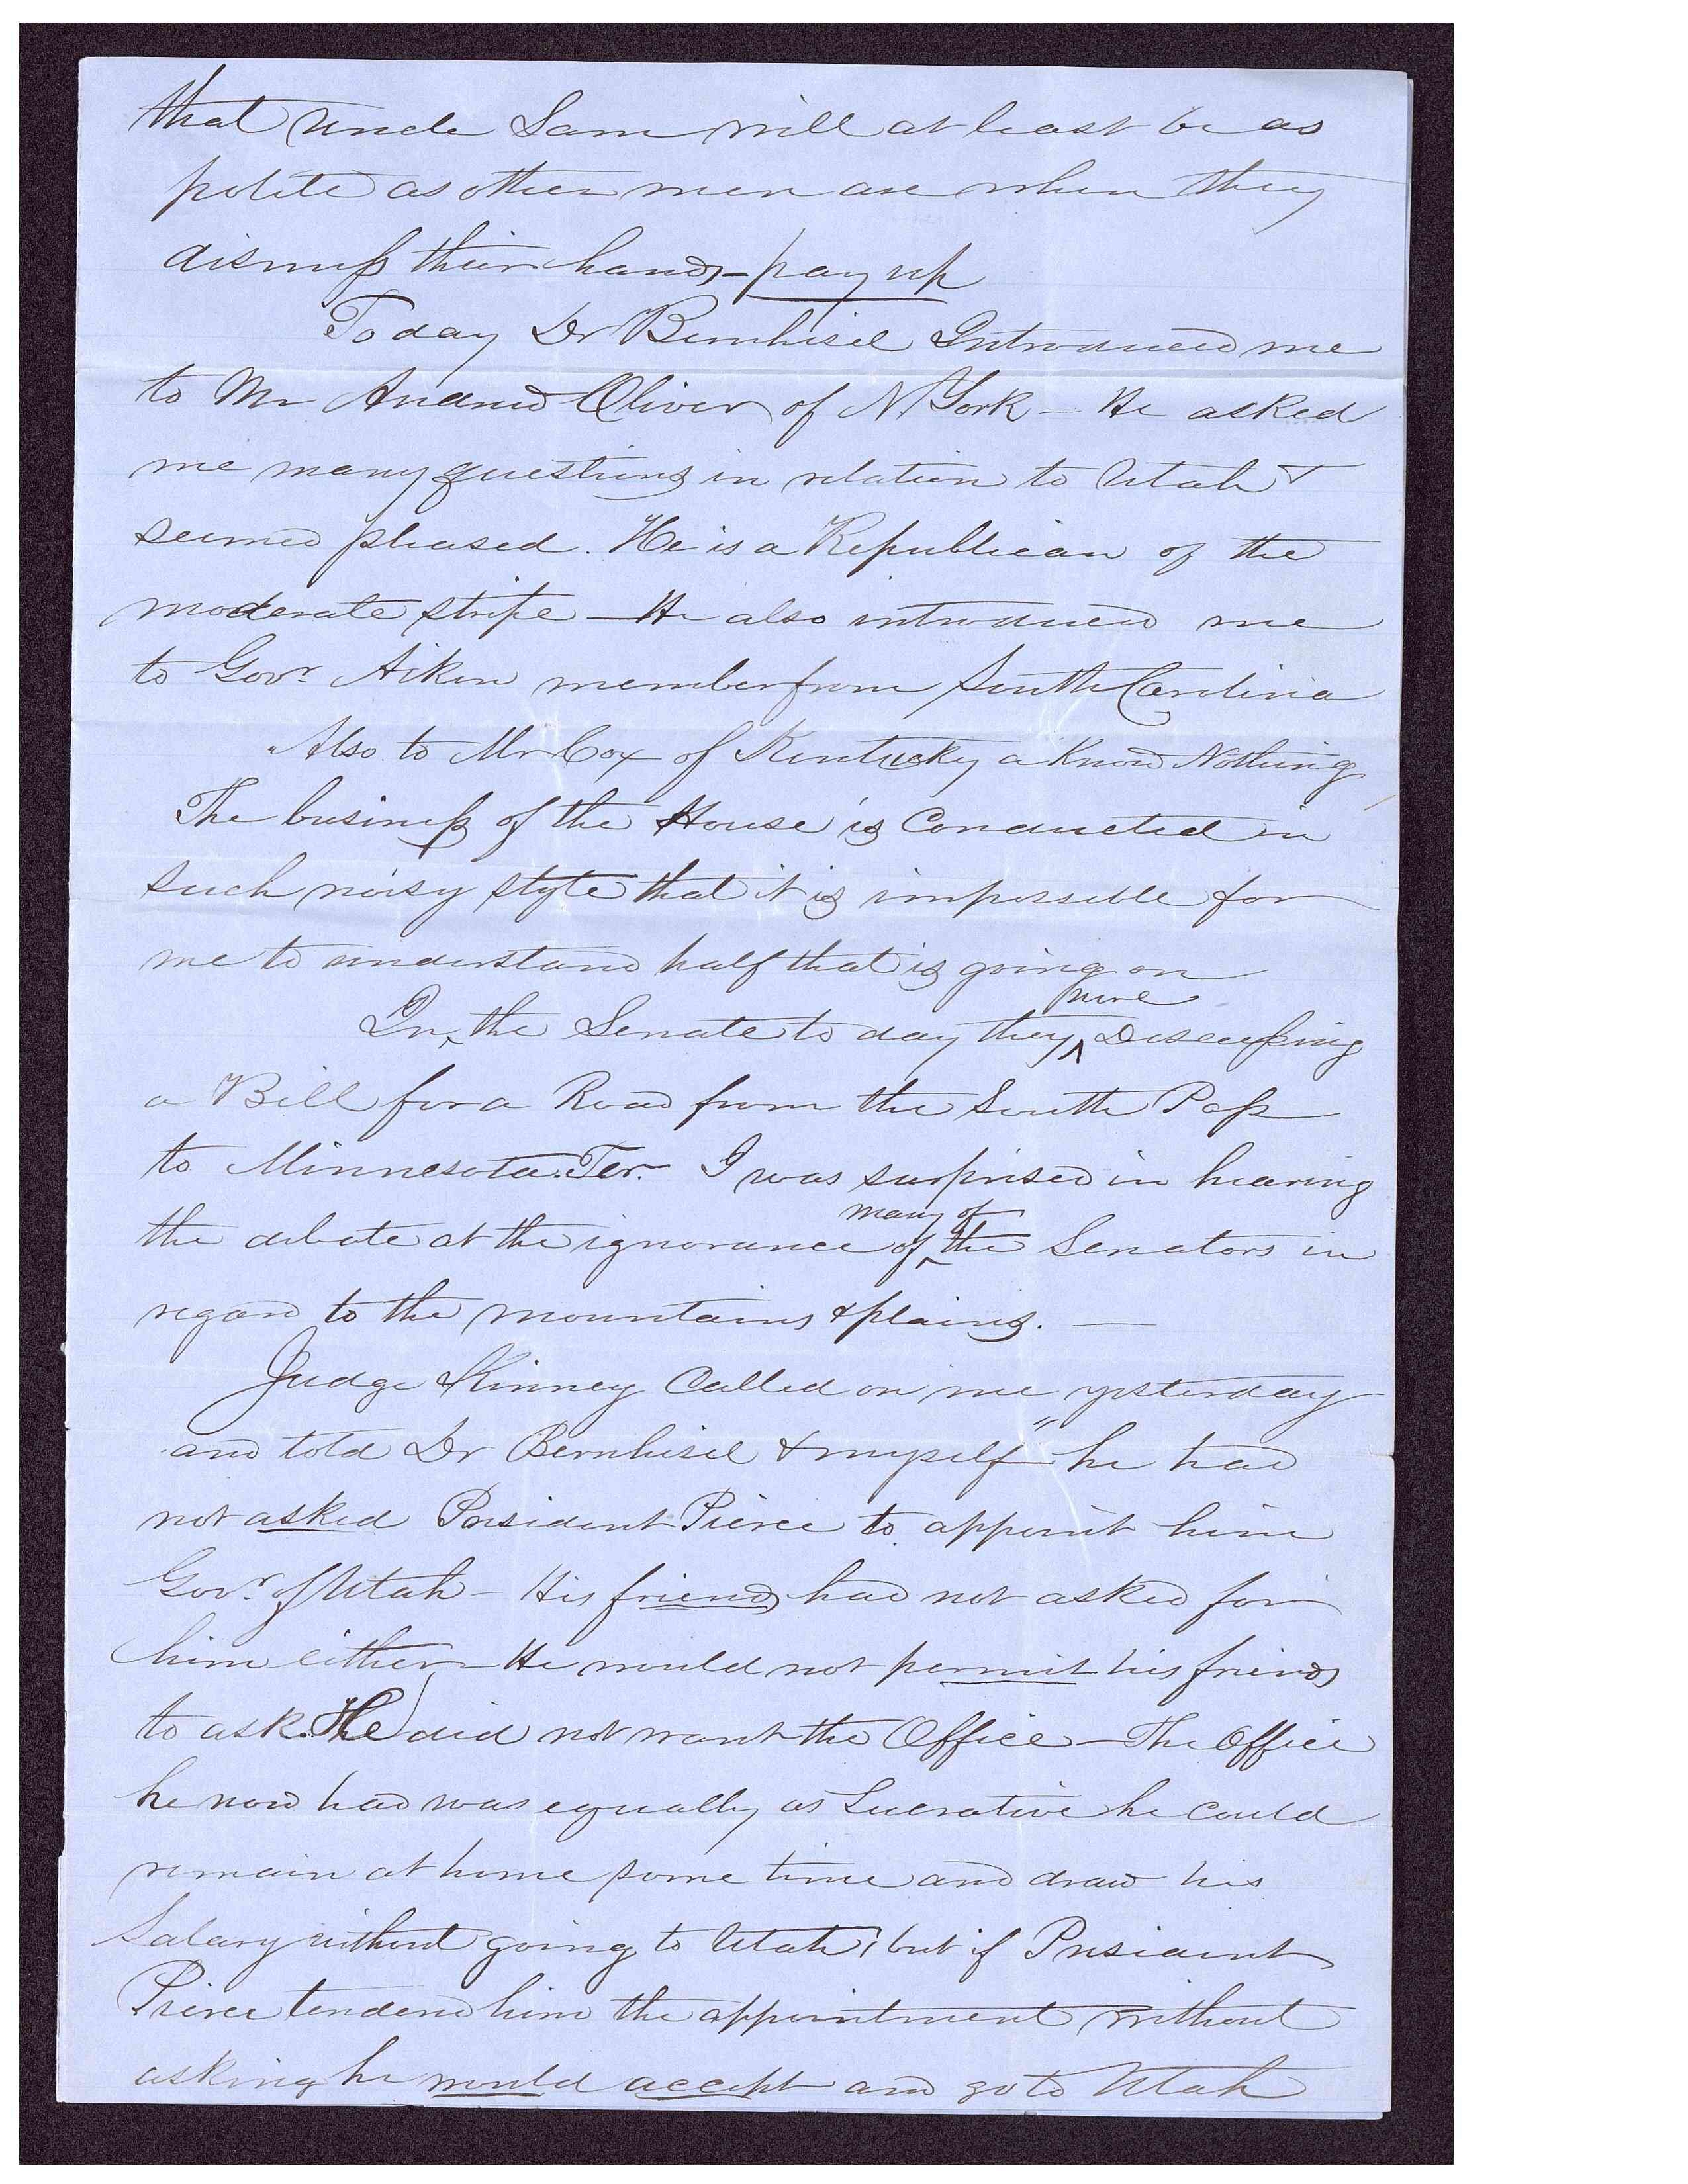 that Uncle Sam will at least be as
polite as other men are when they
dismiss their hands - pay up
Today Dr Bernhisel Introduced me
to Mr Andrew Oliver of N. York - He asked
me many questions in relation to Utah &
seemed pleased. He is a Republican of the
moderate stripe - He also introduced me
to Govr. Aiken member from South Carolina
Also to Mr Cox of Kentucky a Know Nothing
The business of the House is Conducted in
such noisy style that it is impossible for
me to understand half that is going on
were
In the Senate to day they ^ Discussing
a Bill for a Road from the South Pass
to Minnesota Ter. I was surprised in hearing
many of
the debate at the ignorance of ^ the Senators in
regard to the mountains & plains. —
Judge Kinney Called on me yesterday
and told Dr Bernhisel & myself " he had
not asked President Pierce to appoint him
Govr. of Utah - His friends had not asked for
him either - He would not permit his friends
to ask. He did not want the Office - The Office
he now had was equally as Lucrative he could
remain at home some time and draw his
Salary without going to Utah, but if President
Pierce tendered him the appointment without
asking he would accept and go to Utah